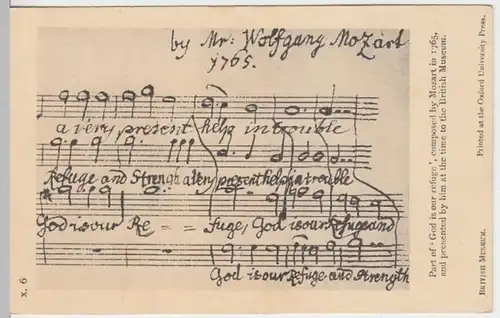 by Mr: Wolfgang Mozart
1765.
a very present help in trouble
Refuge and Strength a very present help in trouble
God is our Re = = fuge, God is our Refuge and
God is our Refuge and Strength
x. 6
Part of ‘God is our refuge’, composed by Mozart in 1765,
and presented by him at the time to the British Museum.
BRITISH MUSEUM.
Printed at the Oxford University Press.